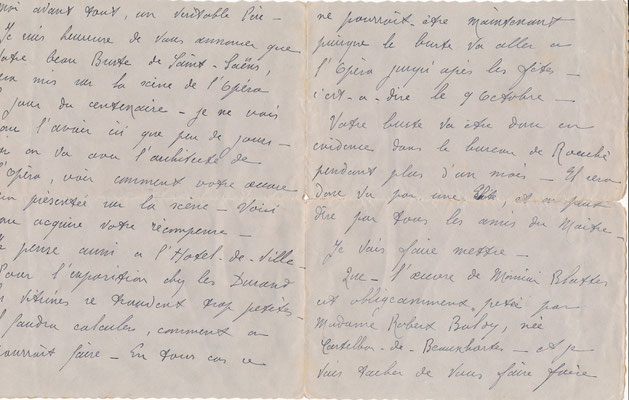 moi avant tout, un véritable Père –
Je suis heureuse de vous annoncer que
votre beau Buste de Saint-Saëns,
sera mis sur la scène de l'Opéra
jour du centenaire – je ne vais
l'avoir ici que peu de jours –
on va avec l'architecte de
l'Opéra, voir comment votre œuvre
présentée sur la scène – Voici
acquise votre récompense –
Je pense aussi à l'Hotel-de-Ville
Pour l'exposition chez les Durand
les vitrines se trouvent trop petites –
Il faudra calculer, comment on
pourrait faire – En tous cas ce
ne pourrait-être maintenant
puisque le buste va aller à
l'Opéra jusqu'après les fêtes –
c'est-à-dire le 9 Octobre –
Votre buste va être donc en
évidence dans le bureau de Rouché
pendant plus d'un mois – Il sera
donc vu par une Élite, et on peut
dire par tous les amis du Maître –
Je vais faire mettre –
Que – l'œuvre de Monsieur
est obligeamment prêtée par
Madame Robert Baldy, née
Castelbon-de-Beauxhostes – et je
vais tâcher de vous faire faire